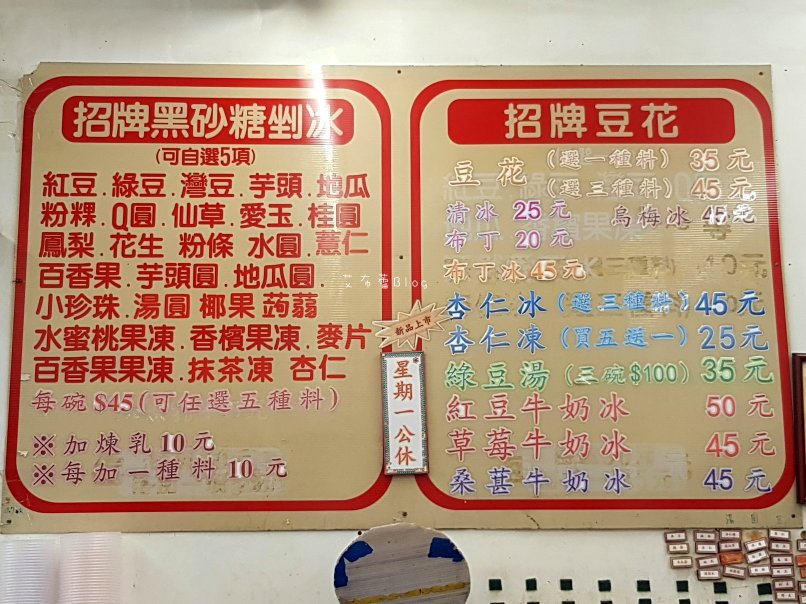 招牌黑砂糖剉冰
(可自選5項)
紅豆.綠豆.灣豆.芋頭.地瓜
粉粿.Q圓.仙草.愛玉.桂圓
鳳梨.花生 粉條 水圓.薏仁
百香果.芋頭圓.地瓜圓.
小珍珠.湯圓 椰果 蒟蒻
水蜜桃果凍.香檳果凍.麥片
百香果果凍.抹茶凍 杏仁
每碗$45(可任選五種料)
※加煉乳10元
※每加一種料10元
艾布蕾Blog
新品上市
星期一公休
招牌豆花
豆花(選一種料)35元
(選三種料)45元
清冰 25元 烏梅冰 45元
布丁 20元
布丁冰45元
杏仁冰(選三種料)45元
杏仁凍(買五送一)25元
綠豆湯(三碗$100)35元
紅豆牛奶冰 50元
草莓牛奶冰 45元
桑葚牛奶冰 45元